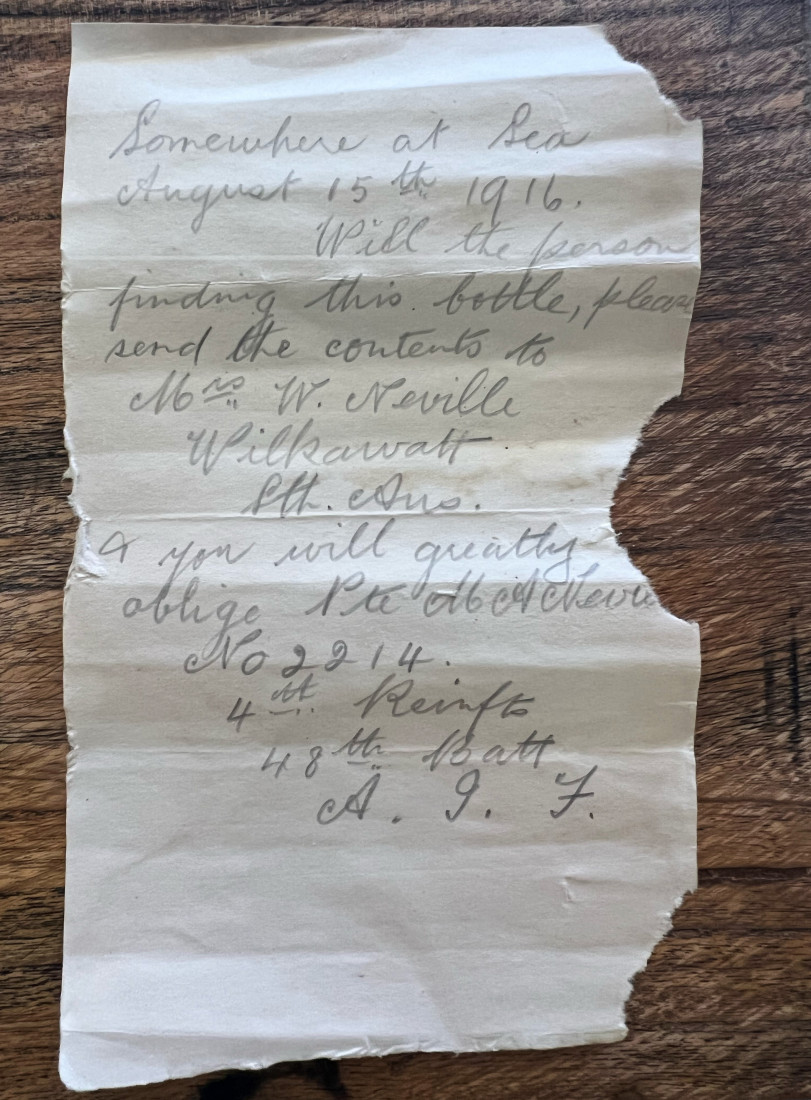 Somewhere at Sea
August 15th 1916.
Will the person
finding this bottle, please
send the contents to
Mrs W. Neville
Wilkawatt
Sth. Aus.
& you will greatly
oblige Pte M A Nevil
No 2214.
4th Reinfts
48th Batt
A. I. F.